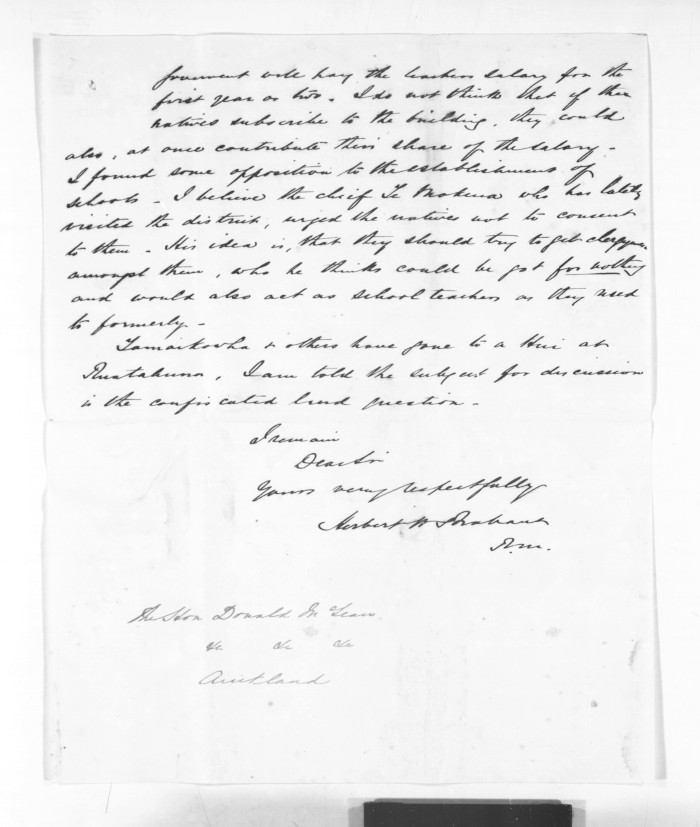 vernment will pay the teachers salary for the
first year or two. I do not think that if the
natives subscribe to the building, they could
also, at once contribute their share of the salary -
I found some opposition to the establishment of
schools - I believe the chief Te Mokena who has lately
visited the district, urged the natives not to consent
to them - His idea is, that they should try to get clergymen
amongst them, who he thinks could be got for nothing
and would also act as school teachers as they used
to formerly -
Tamaikowha & others have gone to a Hui at
Ruatahuna, I am told the subject for discussion
is the confiscated land question -
I remain
Dear Sir
Yours very respectfully
Herbert W Brabant
R.M.
The Hon Donald McLean
&c &c &c
Auckland